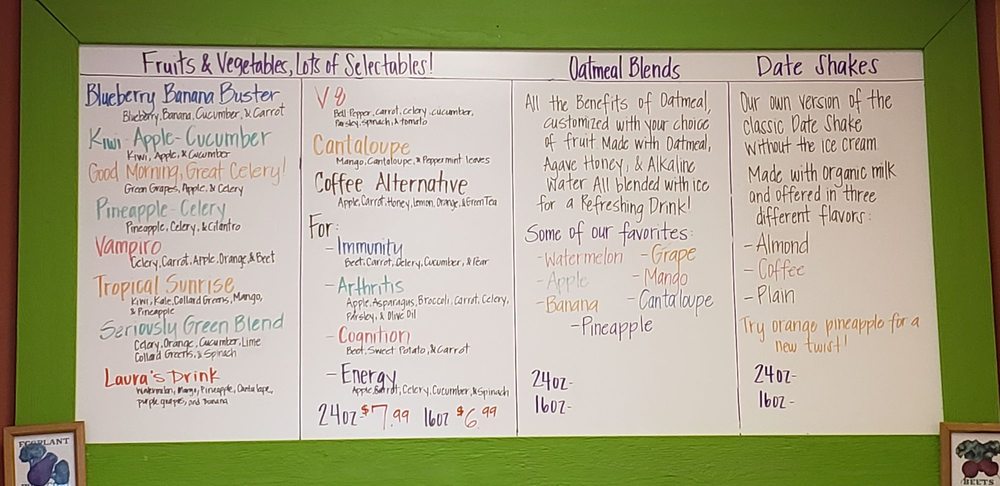 Fruits & Vegetables, Lots of Selectables!
Blueberry Banana Buster
Blueberry, Banana, Cucumber, & Carrot
Kiwi-Apple-Cucumber
Kiwi, Apple, & Cucumber
Good Morning, Great Celery!
Green Grapes, Apple, & Celery
Pineapple-Celery
Pineapple, Celery, & Cilantro
Vampiro
Celery, Carrot, Apple, Orange, & Beet
Tropical Sunrise
Kiwi, Kale, Collard Greens, Mango,
& Pineapple
Seriously Green Blend
Celery, Orange, Cucumber, Lime
Collard Greens, & Spinach
Laura's Drink
Watermelon, Mango, Pineapple, Cantalope,
purple grapes, and Banana
V8
Bell Pepper, Carrot, celery, cucumber,
Parsley, spinach, & tomato
Cantaloupe
Mango, Cantaloupe, & Peppermint leaves
Coffee Alternative
Apple, Carrot, Honey, Lemon, Orange, & Green Tea
For:
- Immunity
Beet, Carrot, Celery, Cucumber, & Pear
- Arthritis
Apple, Asparagus, Broccoli, Carrot, Celery,
Parsley, & Olive Oil
- Cognition
Beet, Sweet Potato, & Carrot
- Energy
Apple, Carrot, Celery, Cucumber, & Spinach
24oz-$7.99 16oz $6.99
Oatmeal Blends
All the Benefits of Oatmeal,
customized with your choice
of fruit Made with Oatmeal,
Agave Honey, & Alkaline
Water All blended with ice
for a Refreshing Drink!
Some of our favorites:
-Watermelon -Grape
-Apple -Mango
-Banana -Cantaloupe
-Pineapple
24oz-
16oz-
Date Shakes
Our own version of the
classic Date Shake
without the ice cream
Made with organic milk
and offered in three
different flavors:
-Almond
-Coffee
-Plain
Try orange pineapple for a
new twist!
24oz-
16oz-
EGGPLANT
BEETS